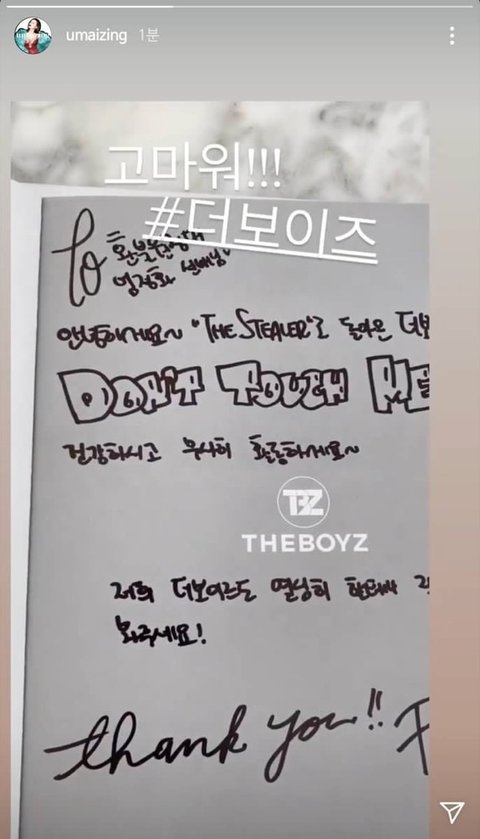 umaizing 1분
고마워!!!
#더보이즈
To 환불원정대
엄정화 선배님
안녕하세요~ "THE STEALER"로 돌아온 더보
DON'T TOUCH ME
건강하시고 무사히 활동하세요~
TBZ
THEBOYZ
저희 더보이즈도 열심히
봐주세요!
thank you!! F